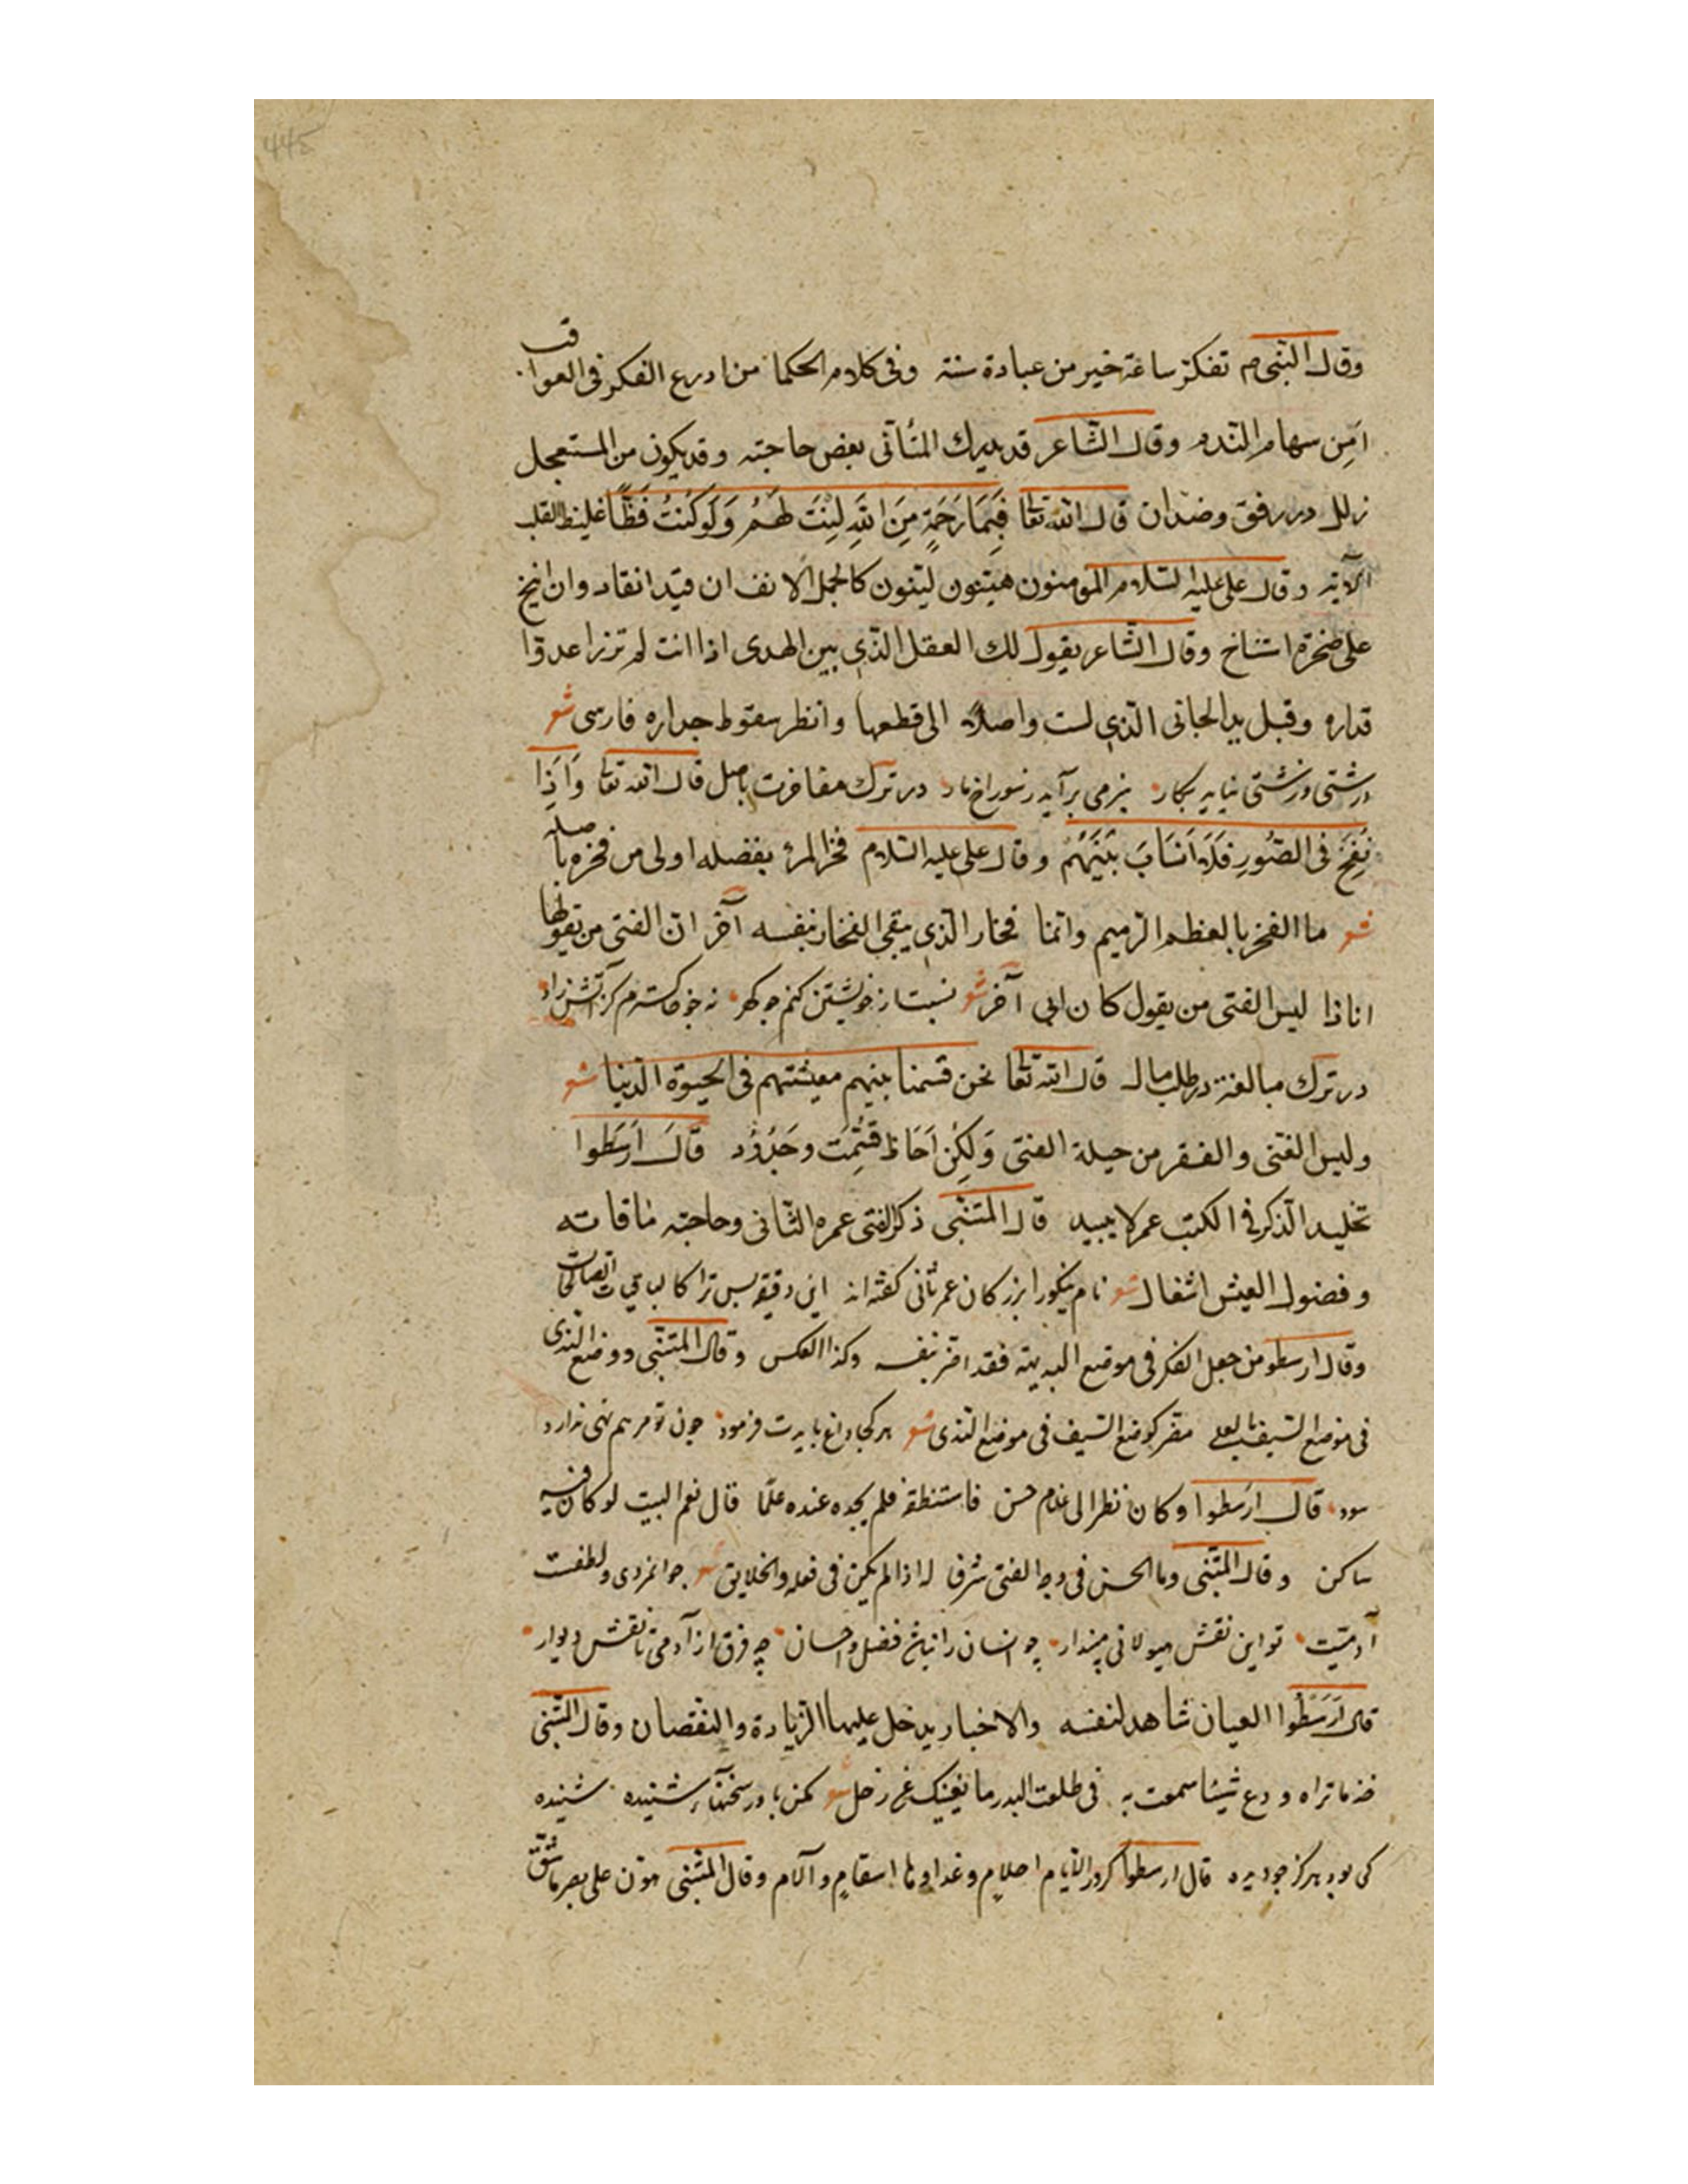 445
وقال النبی م تفكر ساعة خير من عبادة سنة وفى كلام الحكما من ادرع الفكر فى العواقب
اَمِن سهام الندم وقال الشاعر قد يدرك المتأنى بعض حاجته وقد يكون من المستعجل
زلل در رفق وضد ان قال الله تعا فَبِمَا رَحمَةٍ مِنَ اللهِ لِنتَ لَهُمُ وَلَوكُنتَ فَظًّا غليظ القلب
الآية وقال على عليه السلام المومنون هينون لينون كالجمل الانف ان قيد انقاد وان انيخ
على صخرة استناخ وقال الشاعر يقول لك العقل الذى بين الهدى اذا انت لم تزر عدوّا
فداره وقبل يد الجانى الذى لست واصلا الى قطعها وانظر سقوط جداره فارسى شعر
درشتى و زشتى نيايد بكار بنرمى برآيد ز سوراخ مار در ترك مفاخرت باصل قال الله تعا وَاِذَا
نُفِخَ فى الصُّورِ فَلَا اَنسَابَ بَيْنَهُم وقال على عليه السلام فخر المرء بفضله اولى من فخره باصله
شعر ما الفخر بالعظم الرميم وانما فخار الذى يبقى الفخار بنفسه آخر ان الفتى من يقول ها
انا ذا ليس الفتى من يقول كان ابى آخر شعر نسبت از خويشتن كنم چو گهر نه چو خاكسترم كز آتش زاد
در ترك مبالغة در طلب مال قال الله تعا نحن قسمنا بينهم معيشتهم فى الحيوة الدنيا شعر
وليس الغنى والفقر من حيلة الفتى وَلكِن اَحَاظ قُسِّمَت وجُدُود قَالَ اَرَسَطوا
تخليد الذكر فى الكتب عمر لا يبيد قال المتنبى ذكر الفتى عمره الثانى وحاجته ما قاته
وفضول العيش اشغال شعر نام نيكو را بزركان عمر ثانى كفته اند اين دقيقه بس ترا كالباقيات الصالحات
وقال ارسطو من جعل الفكر فى موضع البديهة فقد اضر بنفسه وكذا العكس وقال المتنبى ووضع الندى
فى موضع السيف بالعلى مضر كوضع السيف فى موضع الندى شعر هر كجا داغ بايدت فرمود چون تو مرهم نهى ندارد
سود قال ارسطوا وكان نظر الى غلام حسن فاستنطقه فلم يجده عنده علما قال نعم البيت لو كان فيه
ساكن وقال المتنبى وما الحسن فى وجه الفتى شرفا له اذا لم يكن فى فعله والخلايق شعر جوانمردى ولطفست
آدميت تو اين نقش هيولانى مپندار چو انسان را نباشد فضل و احسان چه فرق از آدمى تا نقش ديوار
قال اَرَسَطُوا العيان شاهد لنفسه والاخبار يدخل عليها الزيادة والنقصان وقال المتنبى
خذ ما تراه ودع شيئا سمعت به فى طلعت البدر ما يغنيك عن زحل شعر مكن باور سخنهاء شنيده شنيده
كى بود هركز چو ديده قال ارسطوا كرور الايام احلام وغداوها اسقام وآلام وقال المتنبى هون على بصر ما شق